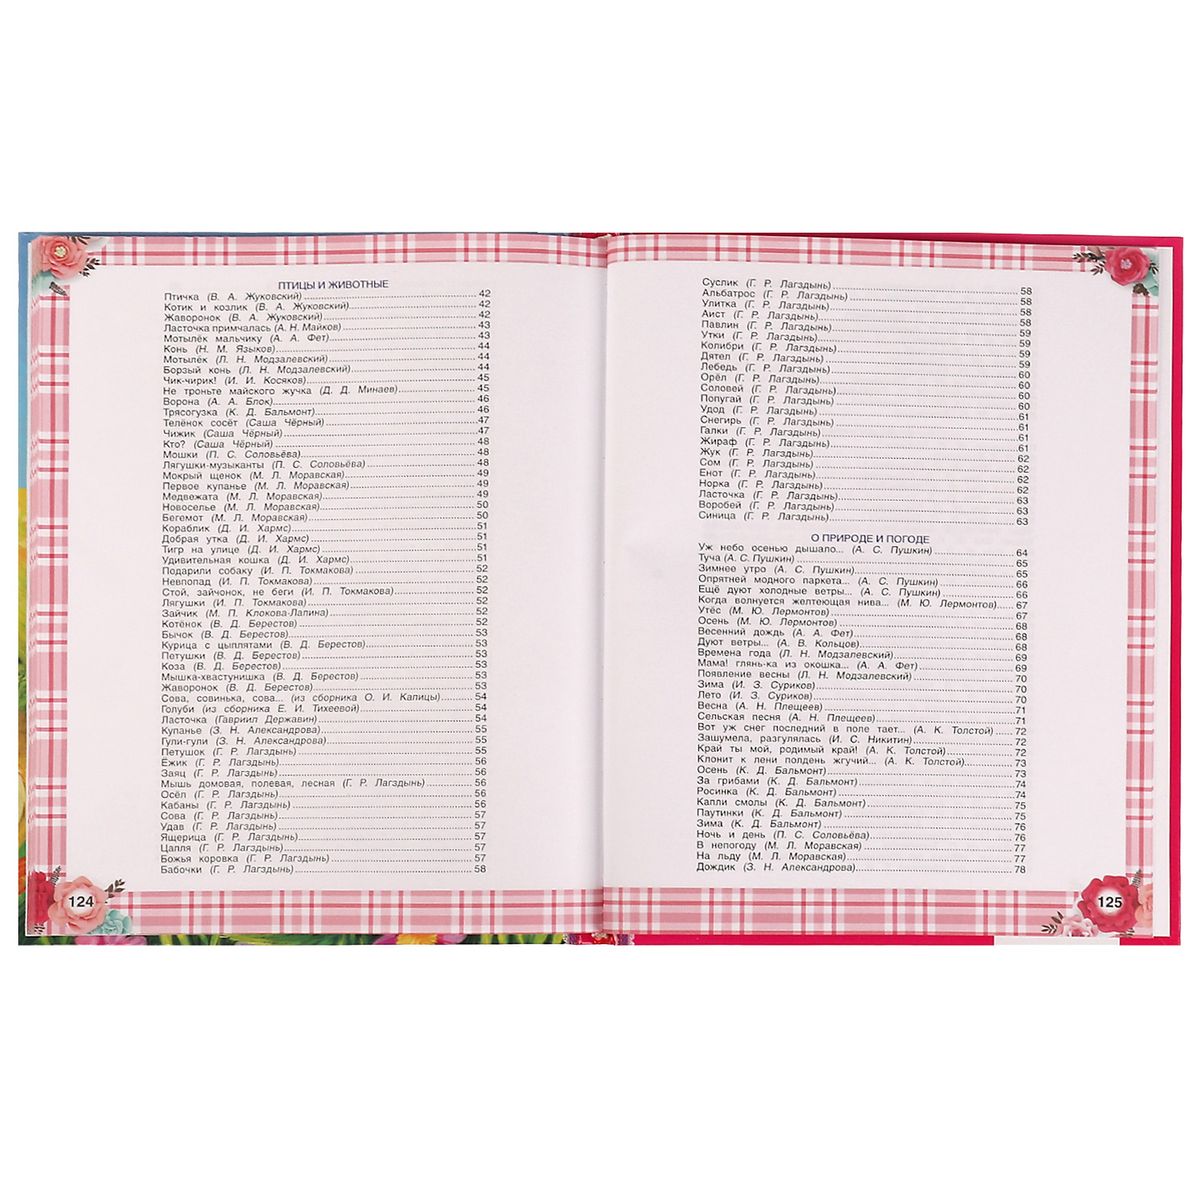 ПТИЦЫ И ЖИВОТНЫЕ
Птичка (В. А. Жуковский) 42
Котик и козлик (В. А. Жуковский) 42
Жаворонок (В. А. Жуковский) 42
Ласточка примчалась (А. Н. Майков) 43
Мотылёк мальчику (А. А. Фет) 43
Конь (Н. М. Языков) 44
Мотылёк (Л. Н. Модзалевский) 44
Борзый конь (Л. Н. Модзалевский) 44
Чик-чирик! (И. И. Косяков) 45
Не троньте майского жучка (Д. Д. Минаев) 45
Ворона (А. А. Блок) 46
Трясогузка (К. Д. Бальмонт) 46
Телёнок сосёт (Саша Чёрный) 47
Чижик (Саша Чёрный) 47
Кто? (Саша Чёрный) 48
Мошки (П. С. Соловьёва) 48
Лягушки-музыканты (П. С. Соловьёва) 48
Мокрый щенок (М. Л. Моравская) 49
Первое купанье (М. Л. Моравская) 49
Медвежата (М. Л. Моравская) 49
Новоселье (М. Л. Моравская) 50
Бегемот (М. Л. Моравская) 50
Кораблик (Д. И. Хармс) 51
Добрая утка (Д. И. Хармс) 51
Тигр на улице (Д. И. Хармс) 51
Удивительная кошка (Д. И. Хармс) 51
Подарили собаку (И. П. Токмакова) 52
Невпопад (И. П. Токмакова) 52
Стой, зайчонок, не беги (И. П. Токмакова) 52
Лягушки (И. П. Токмакова) 52
Зайчик (М. П. Клокова-Лапина) 52
Котёнок (В. Д. Берестов) 52
Бычок (В. Д. Берестов) 53
Курица с цыплятами (В. Д. Берестов) 53
Петушки (В. Д. Берестов) 53
Коза (В. Д. Берестов) 53
Мышка-хвастунишка (В. Д. Берестов) 53
Жаворонок (В. Д. Берестов) 53
Сова, совинька, сова... (из сборника О. И. Капицы) 54
Голуби (из сборника Е. И. Тихеевой) 54
Ласточка (Гавриил Державин) 54
Купанье (З. Н. Александрова) 55
Гули-гули (З. Н. Александрова) 55
Петушок (Г. Р. Лагздынь) 55
Ёжик (Г. Р. Лагздынь) 56
Заяц (Г. Р. Лагздынь) 56
Мышь домовая, полевая, лесная (Г. Р. Лагздынь) 56
Осёл (Г. Р. Лагздынь) 56
Кабаны (Г. Р. Лагздынь) 56
Сова (Г. Р. Лагздынь) 57
Удав (Г. Р. Лагздынь) 57
Ящерица (Г. Р. Лагздынь) 57
Цапля (Г. Р. Лагздынь) 57
Божья коровка (Г. Р. Лагздынь) 57
Бабочки (Г. Р. Лагздынь) 58
124
Суслик (Г. Р. Лагздынь) 58
Альбатрос (Г. Р. Лагздынь) 58
Улитка (Г. Р. Лагздынь) 58
Аист (Г. Р. Лагздынь) 58
Павлин (Г. Р. Лагздынь) 59
Утки (Г. Р. Лагздынь) 59
Колибри (Г. Р. Лагздынь) 59
Дятел (Г. Р. Лагздынь) 59
Лебедь (Г. Р. Лагздынь) 60
Орёл (Г. Р. Лагздынь) 60
Соловей (Г. Р. Лагздынь) 60
Попугай (Г. Р. Лагздынь) 60
Удод (Г. Р. Лагздынь) 61
Снегирь (Г. Р. Лагздынь) 61
Галки (Г. Р. Лагздынь) 61
Жираф (Г. Р. Лагздынь) 61
Жук (Г. Р. Лагздынь) 62
Сом (Г. Р. Лагздынь) 62
Енот (Г. Р. Лагздынь) 62
Норка (Г. Р. Лагздынь) 62
Ласточка (Г. Р. Лагздынь) 63
Воробей (Г. Р. Лагздынь) 63
Синица (Г. Р. Лагздынь) 63
О ПРИРОДЕ И ПОГОДЕ
Уж небо осенью дышало... (А. С. Пушкин) 64
Туча (А. С. Пушкин) 65
Зимнее утро (А. С. Пушкин) 65
Опрятней модного паркета... (А. С. Пушкин) 66
Ещё дуют холодные ветры... (А. С. Пушкин) 66
Когда волнуется желтеющая нива... (М. Ю. Лермонтов) 67
Утёс (М. Ю. Лермонтов) 67
Осень (М. Ю. Лермонтов) 68
Весенний дождь (А. А. Фет) 68
Дуют ветры... (А. В. Кольцов) 68
Времена года (Л. Н. Модзалевский) 69
Мама! глянь-ка из окошка... (А. А. Фет) 69
Появление весны (Л. Н. Модзалевский) 70
Зима (И. З. Суриков) 70
Лето (И. З. Суриков) 70
Весна (А. Н. Плещеев) 71
Сельская песня (А. Н. Плещеев) 71
Вот уж снег последний в поле тает... (А. К. Толстой) 72
Зашумела, разгулялась (И. С. Никитин) 72
Край ты мой, родимый край! (А. К. Толстой) 72
Клонит к лени полдень жгучий... (А. К. Толстой) 73
Осень (К. Д. Бальмонт) 73
За грибами (К. Д. Бальмонт) 74
Росинка (К. Д. Бальмонт) 74
Капли смолы (К. Д. Бальмонт) 75
Паутинки (К. Д. Бальмонт) 75
Зима (К. Д. Бальмонт) 76
Ночь и день (П. С. Соловьёва) 76
В непогоду (М. Л. Моравская) 77
На льду (М. Л. Моравская) 77
Дождик (З. Н. Александрова) 78
125